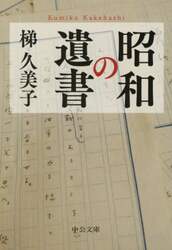 Kumiko Kakehashi
昭和
の
遺書
梯 久美子
中公文庫